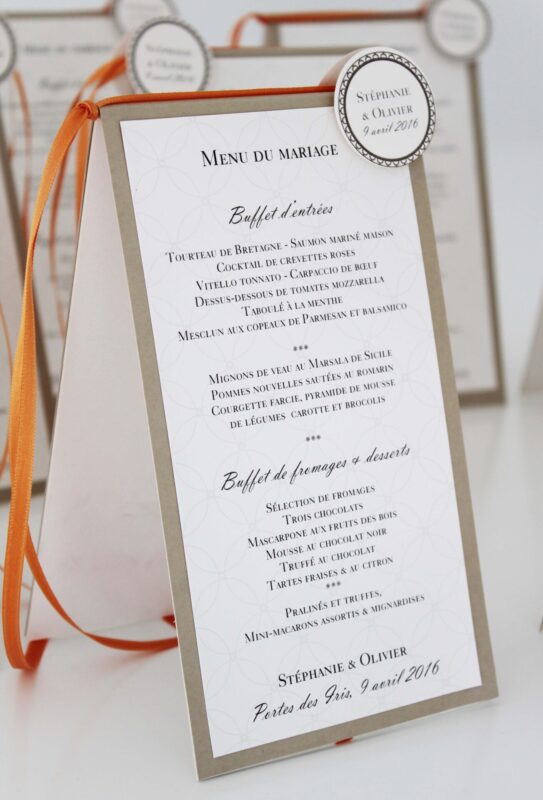 Stéphanie
& Olivier
9 avril 2016
Stéphanie
& Olivier
Menu du mariage
Buffet d'entrées
Tourteau de Bretagne - Saumon mariné maison
Cocktail de crevettes roses
Vitello tonnato - Carpaccio de bœuf
Dessus-dessous de tomates mozzarella
Taboulé à la menthe
Mesclun aux copeaux de Parmesan et balsamico
***
Mignons de veau au Marsala de Sicile
Pommes nouvelles sautées au romarin
Courgette farcie, pyramide de mousse
de légumes carotte et brocolis
***
Buffet de fromages & desserts
Sélection de fromages
Trois chocolats
Mascarpone aux fruits des bois
Mousse au chocolat noir
Truffé au chocolat
Tartes fraises & au citron
***
Pralinés et truffes,
Mini-macarons assortis & mignardises
Stéphanie & Olivier
Portes des Iris, 9 avril 2016